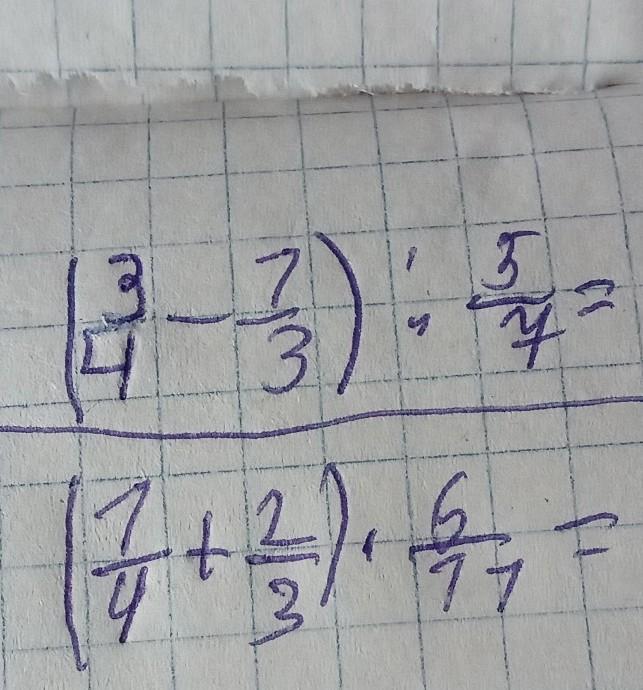 (3/4 - 1/3) : 5/7 =
(1/4 + 2/3) · 6/11 =